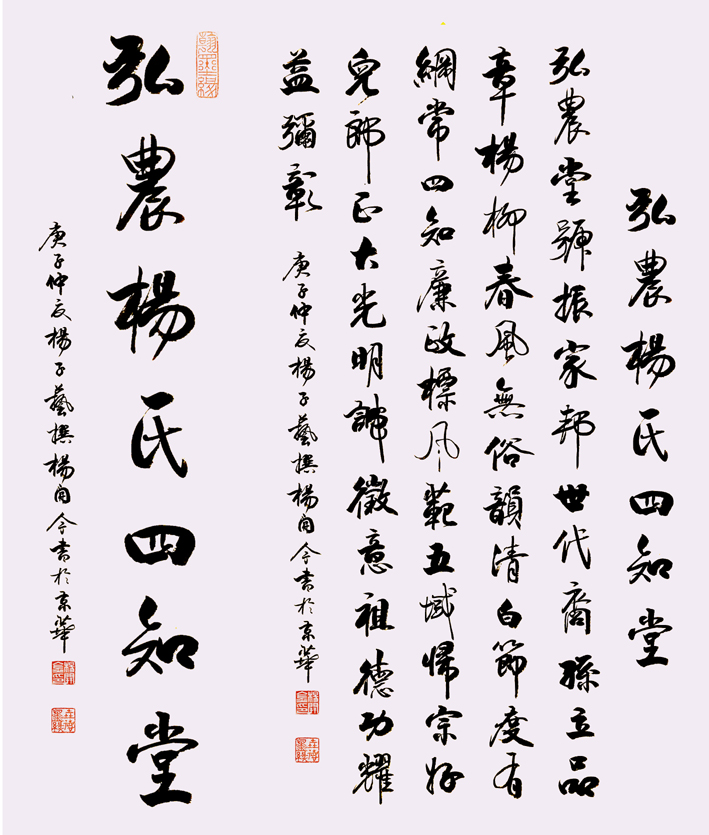 弘農楊氏四知堂
弘農堂號振家邦世代裔孫立品
章楊柳春風無俗韻清白節度有
綱常四知廉政標風範五域歸宗好
兒郎正大光明諦徽意祖德功耀
益彌彰
庚子仲夏楊子藝撰楊自今書於京華
弘農楊氏四知堂
庚子仲夏楊子藝撰楊自今書於京華